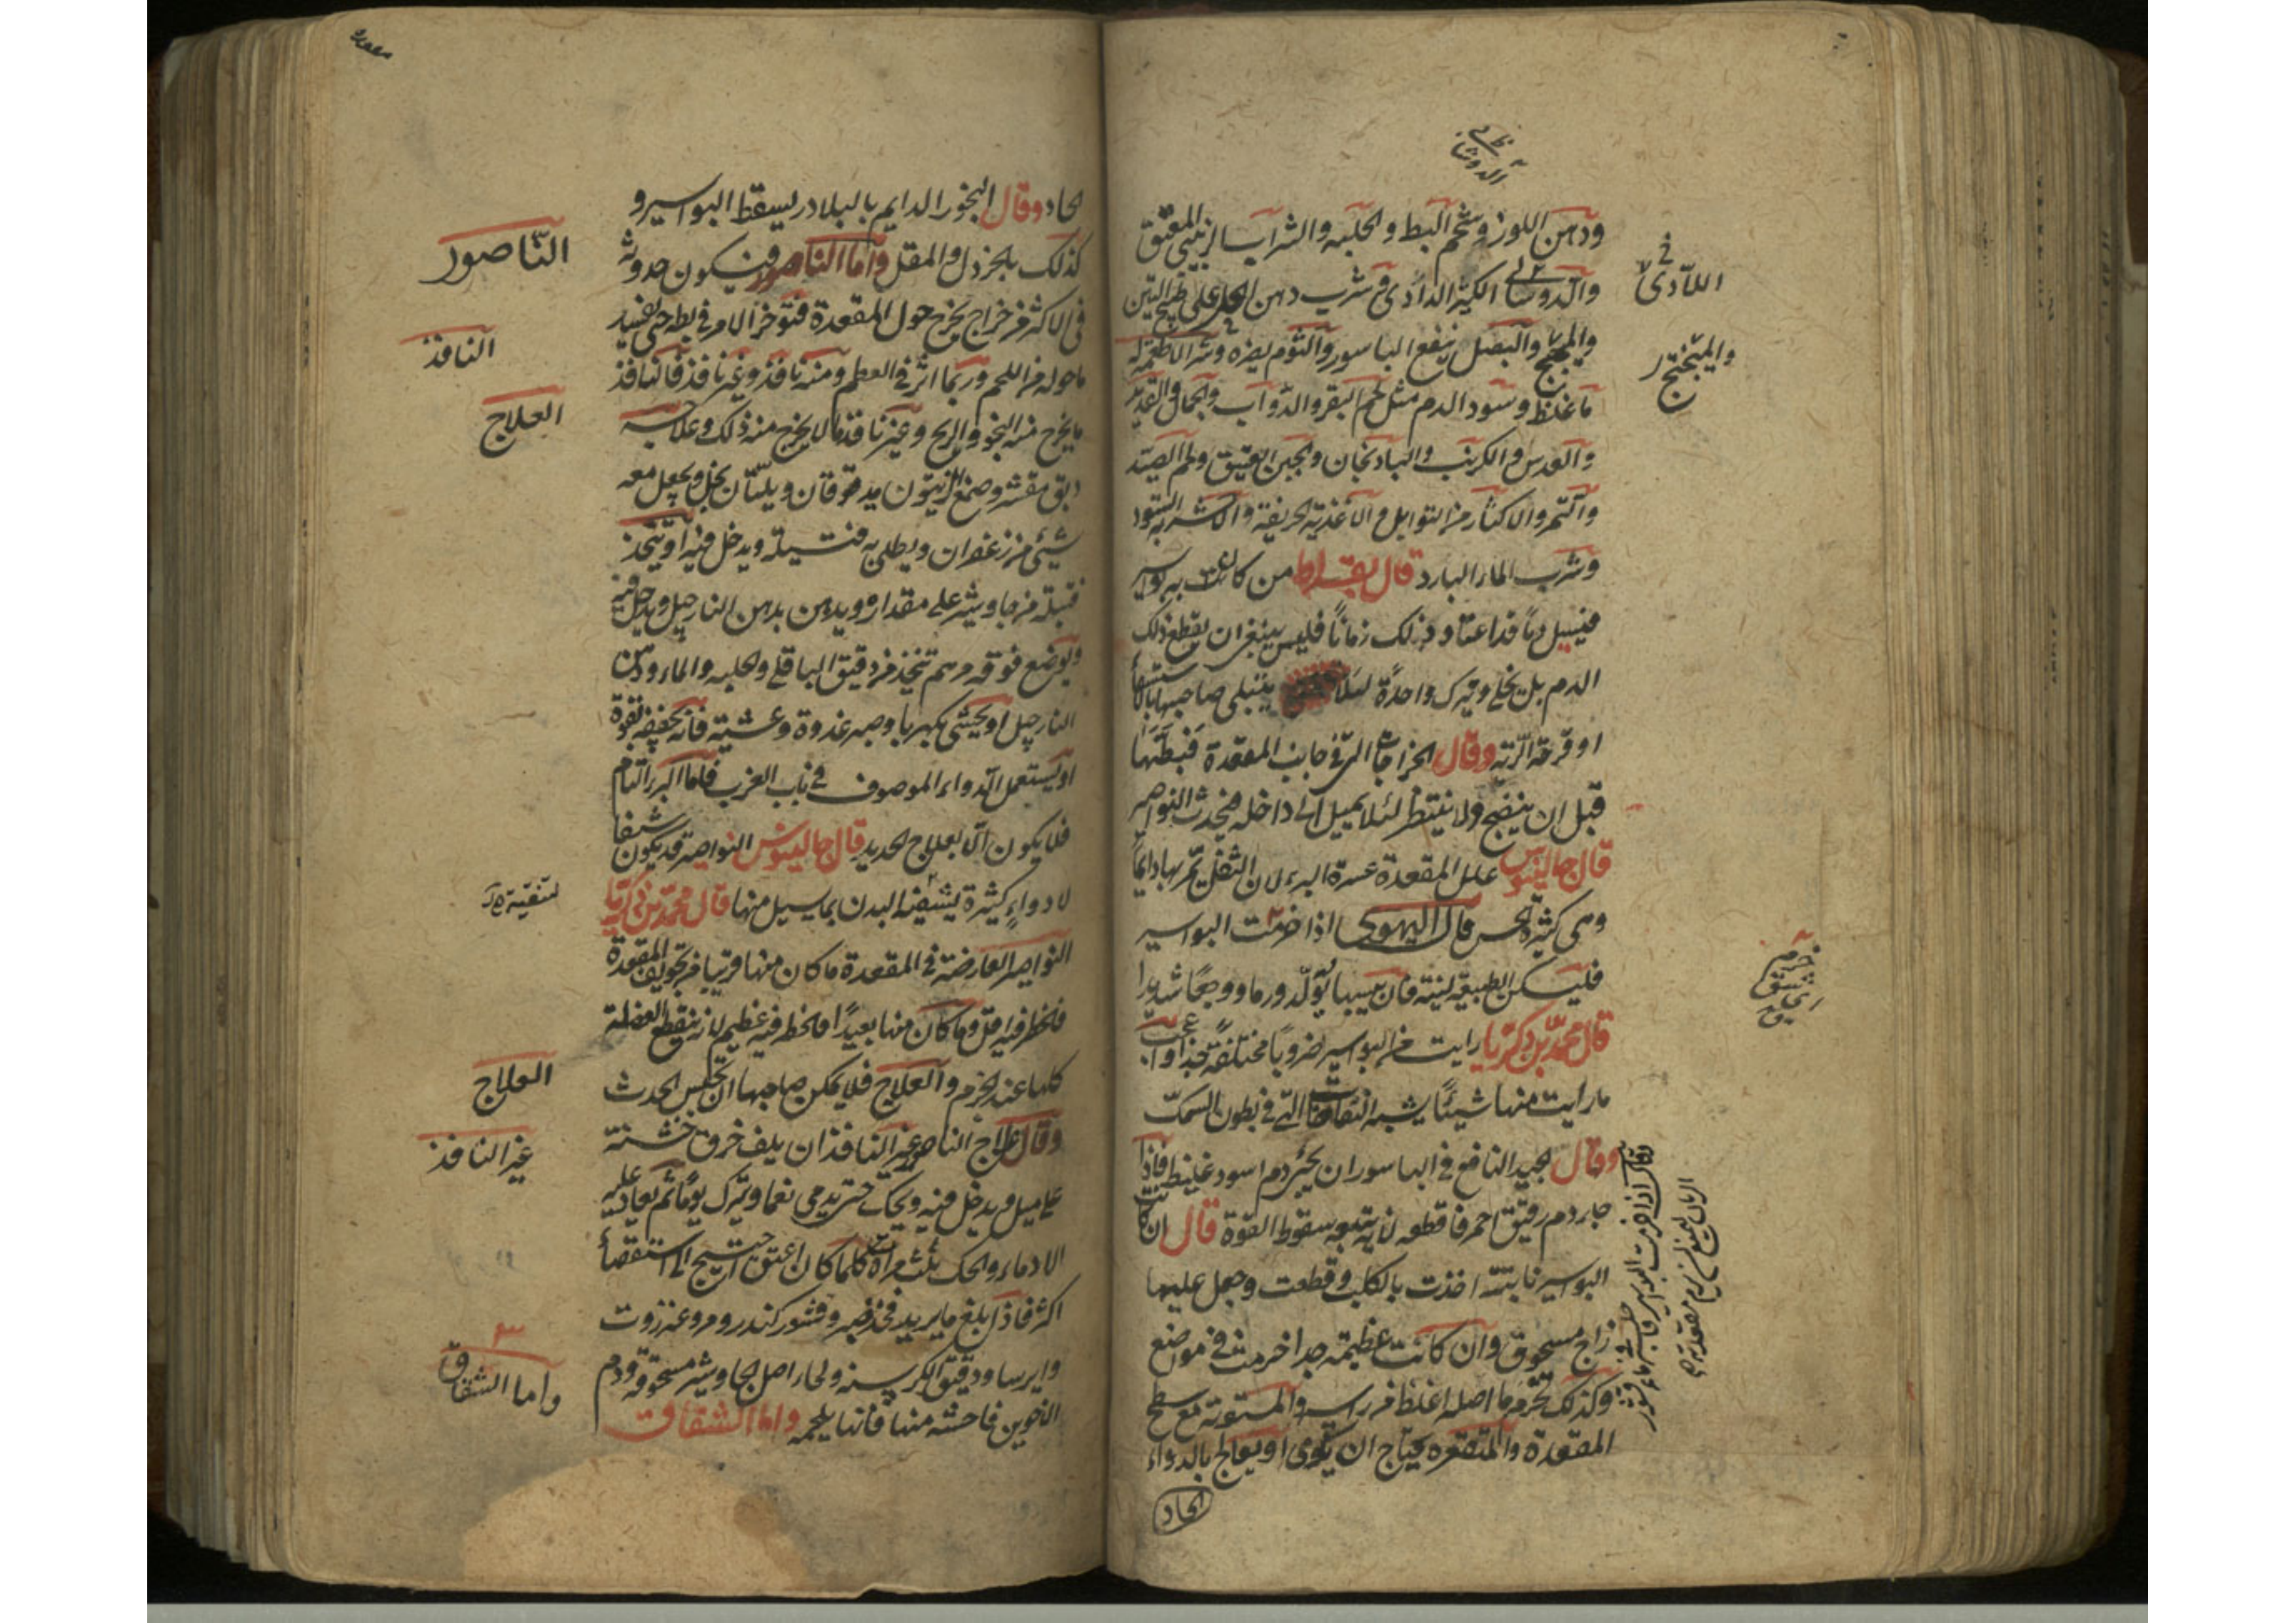 ودهن اللوز وشحم البط والحلبه والشراب الزبيبي المعتق
والدوشابي الكثير الداذي وشرب دهن على طبيخ التين
والبصل ينفع الباسور والثوم يضره وشر الاطعمة له
ما غلظ وسود الدم مثل لحم البقر والدواب والجمال والقديد
والعدس والكرنب والبادنجان والجبن العتيق ولحم الصيد
والتمر والاكثار من التوابل والاغذية الحريفة والاشربه السود
وشرب الماء البارد قال بقراط من كانت به بواسير
فيسيل دما قد اعتاد ذلك زمانا فليس ينبغي ان يقطع ذلك
الدم بل يخلي ويترك واحدة لئلا يبتلي صاحبها بالاستسقا
او قرحة الرئة وقال الخراجات التي في جانب المقعدة فبطها
قبل ان ينضج ولا ينتظر لئلا يميل الى داخله فيحدث النواصير
قال جالينوس علل المقعدة عسرة البرء لان الثفل يمر بها دايما
وهي كثيرة الحس قال اليهودي اذا خزمت البواسير
فليكن الطبيعة لينة فان يبسها يولد ورما ووجعا شديدا
قال محمد بن زكريا رايت من البواسير ضروبا مختلفة جدا واعجب
ما رايت منها شيئا يشبه النفاخات التي في بطون السمك
وقال الجيد النافع في الباسور ان يجئ دم اسود غليظ فاذا
جاء دم رقيق احمر فاقطعه لانه يتبعه سقوط القوة قال ان كانت
البواسير ناتئة اخذت بالكلبة وقطعت وجعل عليها
زاج مسحوق وان كانت عظيمة جدا خرمت في مواضع
وكذلك تخرم ما اصله اغلظ من راسه والمستوية مع سطح
المقعدة والمتقعره يحتاج ان يكوى او يعالج بالدواء
الحاد
والمبختج
خزم
شق
وقال اذا خزمت البواسير
الحاد وقال البخور الدايم بالبلادر يسقط البواسير و
كذلك بالخردل والمقل واما الناصور فيكون حدوثه
في الاكثر من خراج يخرج حول المقعدة فتوخر الامر في بطه حتى يفسد
ما حوله من اللحم وربما اثر في العظم ومنه نافذ وغير نافذ فالنافذ
ما يخرج منه النجو والريح وغير نافذ ما لا يخرج منه ذلك وعلاجه
دبق مقشر وصمغ الزيتون مدقوقان ويلتان بخل ويجعل معه
شئ من زعفران ويطلى به فتيلة ويدخل فيه او يتخذ
فتيلة من جاوشير على مقداره ويدهن بدهن النارجيل ويدخل فيه
ويوضع فوقه مرهم تتخذ من دقيق الباقلي والحلبه والماء ودهن
النارجيل او يحشى بكهربا وصبر غدوة وعشية فانه يجففه بقوة
او يستعمل الدواء الموصوف في باب الغرب فاما البرء التام
فلا يكون الا بعلاج الحديد قال جالينوس النواصير قد يكون شفا
لادواء كثيرة البدن بما يسيل منها قال محمد بن زكريا
النواصير العارضة في المقعدة ما كان منها قريبا من تجويف المقعدة
فالخطر فيه اقل وما كان منها بعيدا فالخطر فيه عظيم لانه ينقطع العضلة
كلها عند الخزم والعلاج فلا يمكن صاحبها ان يحبس الحدث
وقال علاج الناصور غير النافذ ان يلف خرق خشنة
على ميل ويدخل فيه ويحك حتى يدمي نعما ويترك يوما ثم يعاد عليه
الادماء والحك ثلث مرات كلما كان اعتق احتيج الى استقصاء
اكثر فاذا بلغ ما يريد فخذ صبر وقشور كندر ومر وعنزروت
وايرسا ودقيق الكرسنه ولحاء اصل الجاوشير مسحوقة ودم
الاخوين فاحشه منها فانها يلحمه واما الشقاق
الناصور
النافذ
العلاج
لتنقية
العلاج
غير النافذ
واما الشقاق